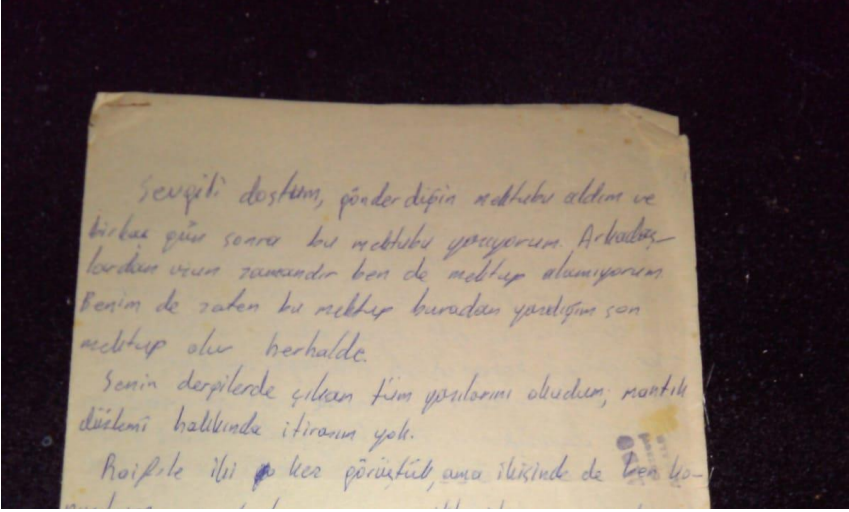 Sevgili dostum, gönderdiğin mektubu aldım ve
birkaç gün sonra bu mektubu yazıyorum. Arkadaş-
lardan uzun zamandır ben de mektup alamıyorum
Benim de zaten bu mektup buradan yazdığım son
mektup olur herhalde.
Senin dergilerde çıkan tüm yazılarını okudum; mantık
düzlemi hakkında itirazım yok.
Raif'le iki kez görüştük, ama ikisinde de ben ko-